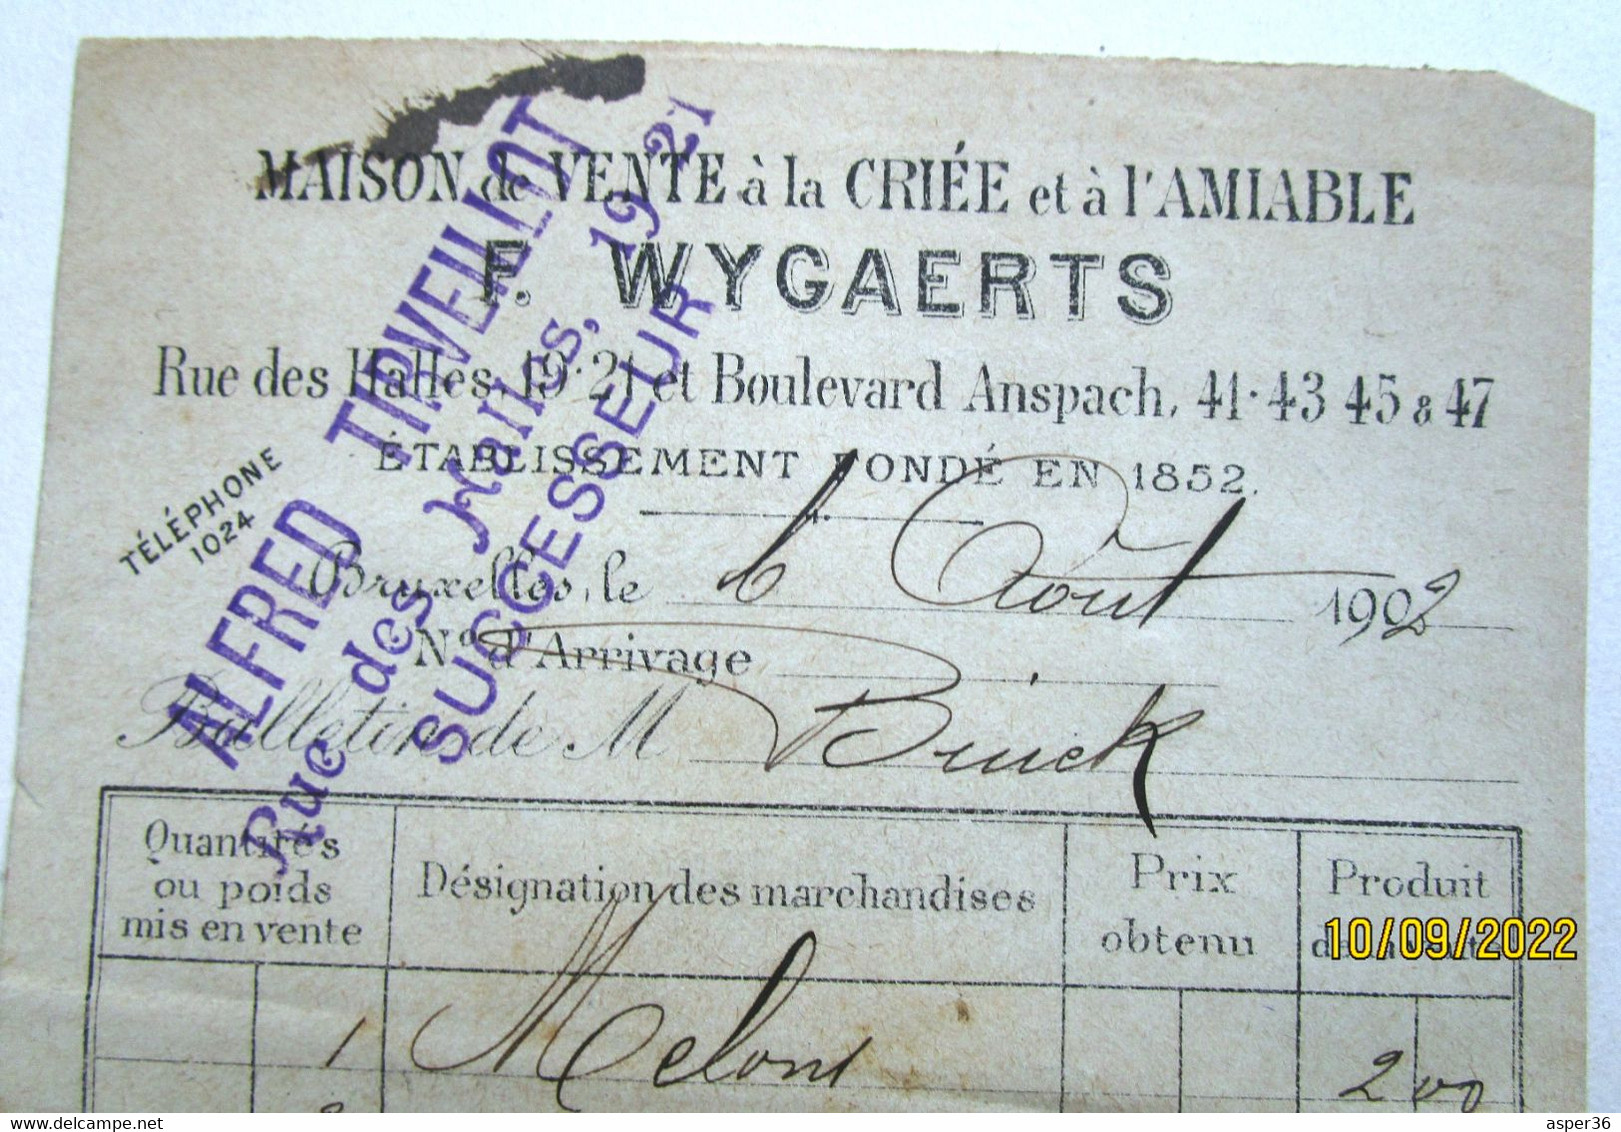 MAISON de VENTE à la CRIÉE et à l'AMIABLE
F. WYGAERTS
Rue des Halles, 19-21 et Boulevard Anspach, 41-43 45 & 47
ÉTABLISSEMENT FONDÉ EN 1852.
TÉLÉPHONE
1024
ALFRED TIRVEILLOT
Rue des Halles, 19 21
SUCCESSEUR
Bruxelles, le 6 Août 1902
No d'Arrivage
Bulletin de M
Quantités
ou poids
mis en vente
Désignation des marchandises
Prix
obtenu
Produit
de la vente
10/09/2022
1 Melons 2 00
asper36